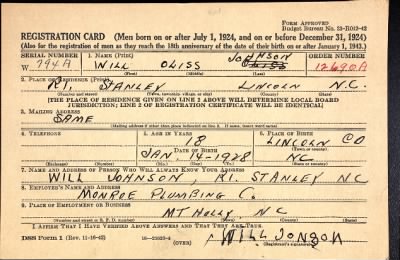 FORM APPROVED
Budget Bureau No. 33-R012-42
REGISTRATION CARD (Men born on or after July 1, 1924, and on or before December 31, 1924)
(Also for the registration of men as they reach the 18th anniversary of the date of their birth on or after January 1, 1943.)
SERIAL NUMBER
1. NAME (Print)
ORDER NUMBER
JOHNSON
W 794A
WILL OLISS
12690A
2. PLACE OF RESIDENCE (Print)
R1. STANLEY LINCOLN N.C.
[THE PLACE OF RESIDENCE GIVEN ON LINE 2 ABOVE WILL DETERMINE LOCAL BOARD
JURISDICTION; LINE 2 OF REGISTRATION CERTIFICATE WILL BE IDENTICAL]
3. MAILING ADDRESS
SAME
(Mailing address if other than place indicated on line 2. If same, insert word same)
4. TELEPHONE
5. AGE IN YEARS
6. PLACE OF BIRTH
18
LINCOLN CO
DATE OF BIRTH
JAN. 14-1928
NC
(Exchange) (Number)
(Mo.) (Day) (Yr.)
(State or country)
7. NAME AND ADDRESS OF PERSON WHO WILL ALWAYS KNOW YOUR ADDRESS
WILL JOHNSON, R1. STANLEY NC
8. EMPLOYER'S NAME AND ADDRESS
MONROE PLUMBING C.
9. PLACE OF EMPLOYMENT OR BUSINESS
MT HOLLY, NC
(Number and street or R. F. D. number) (Town) (County) (State)
I AFFIRM THAT I HAVE VERIFIED ABOVE ANSWERS AND THAT THEY ARE TRUE.
DSS Form 1 (Rev. 11-16-42)
(OVER)
WILL JONSON
(Registrant's signature)